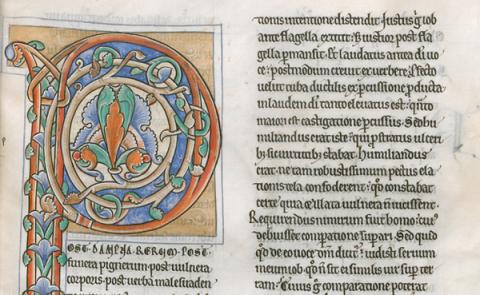 P
OST DAMPNA RERUM POST
funera pignerum post uulnera
corporis post uerba male suaden
tionis intentione distendit. Iustus g iob
ante flagella extitit. & iustior post fla
gella p mansit. & laudatus antea di uo
ce: postmodum creuit ex uerbere.
uelut tuba ductilis ex percussione p ducta
in laudem di tanto eleuatus est. qnto
maiori est castigatione percussus. Sed hu
miliandus erat iste. qui p stratus ulceri
b; sic uirtutib; stabat. Humiliandus
erat. ne tam robustissimum pectus ela
tionis tela confoderent. qd constabat
certe quia & illata uulnera n uicissent.
Requirendus nimirum fuit homo: cui
debuisset comparatione supari. Sed quid
qd de eo uoce dni dicit: uidisti seruum
meum iob. qd n sit ei similis uir sup ter
ram. Cuius g comparatione poterat